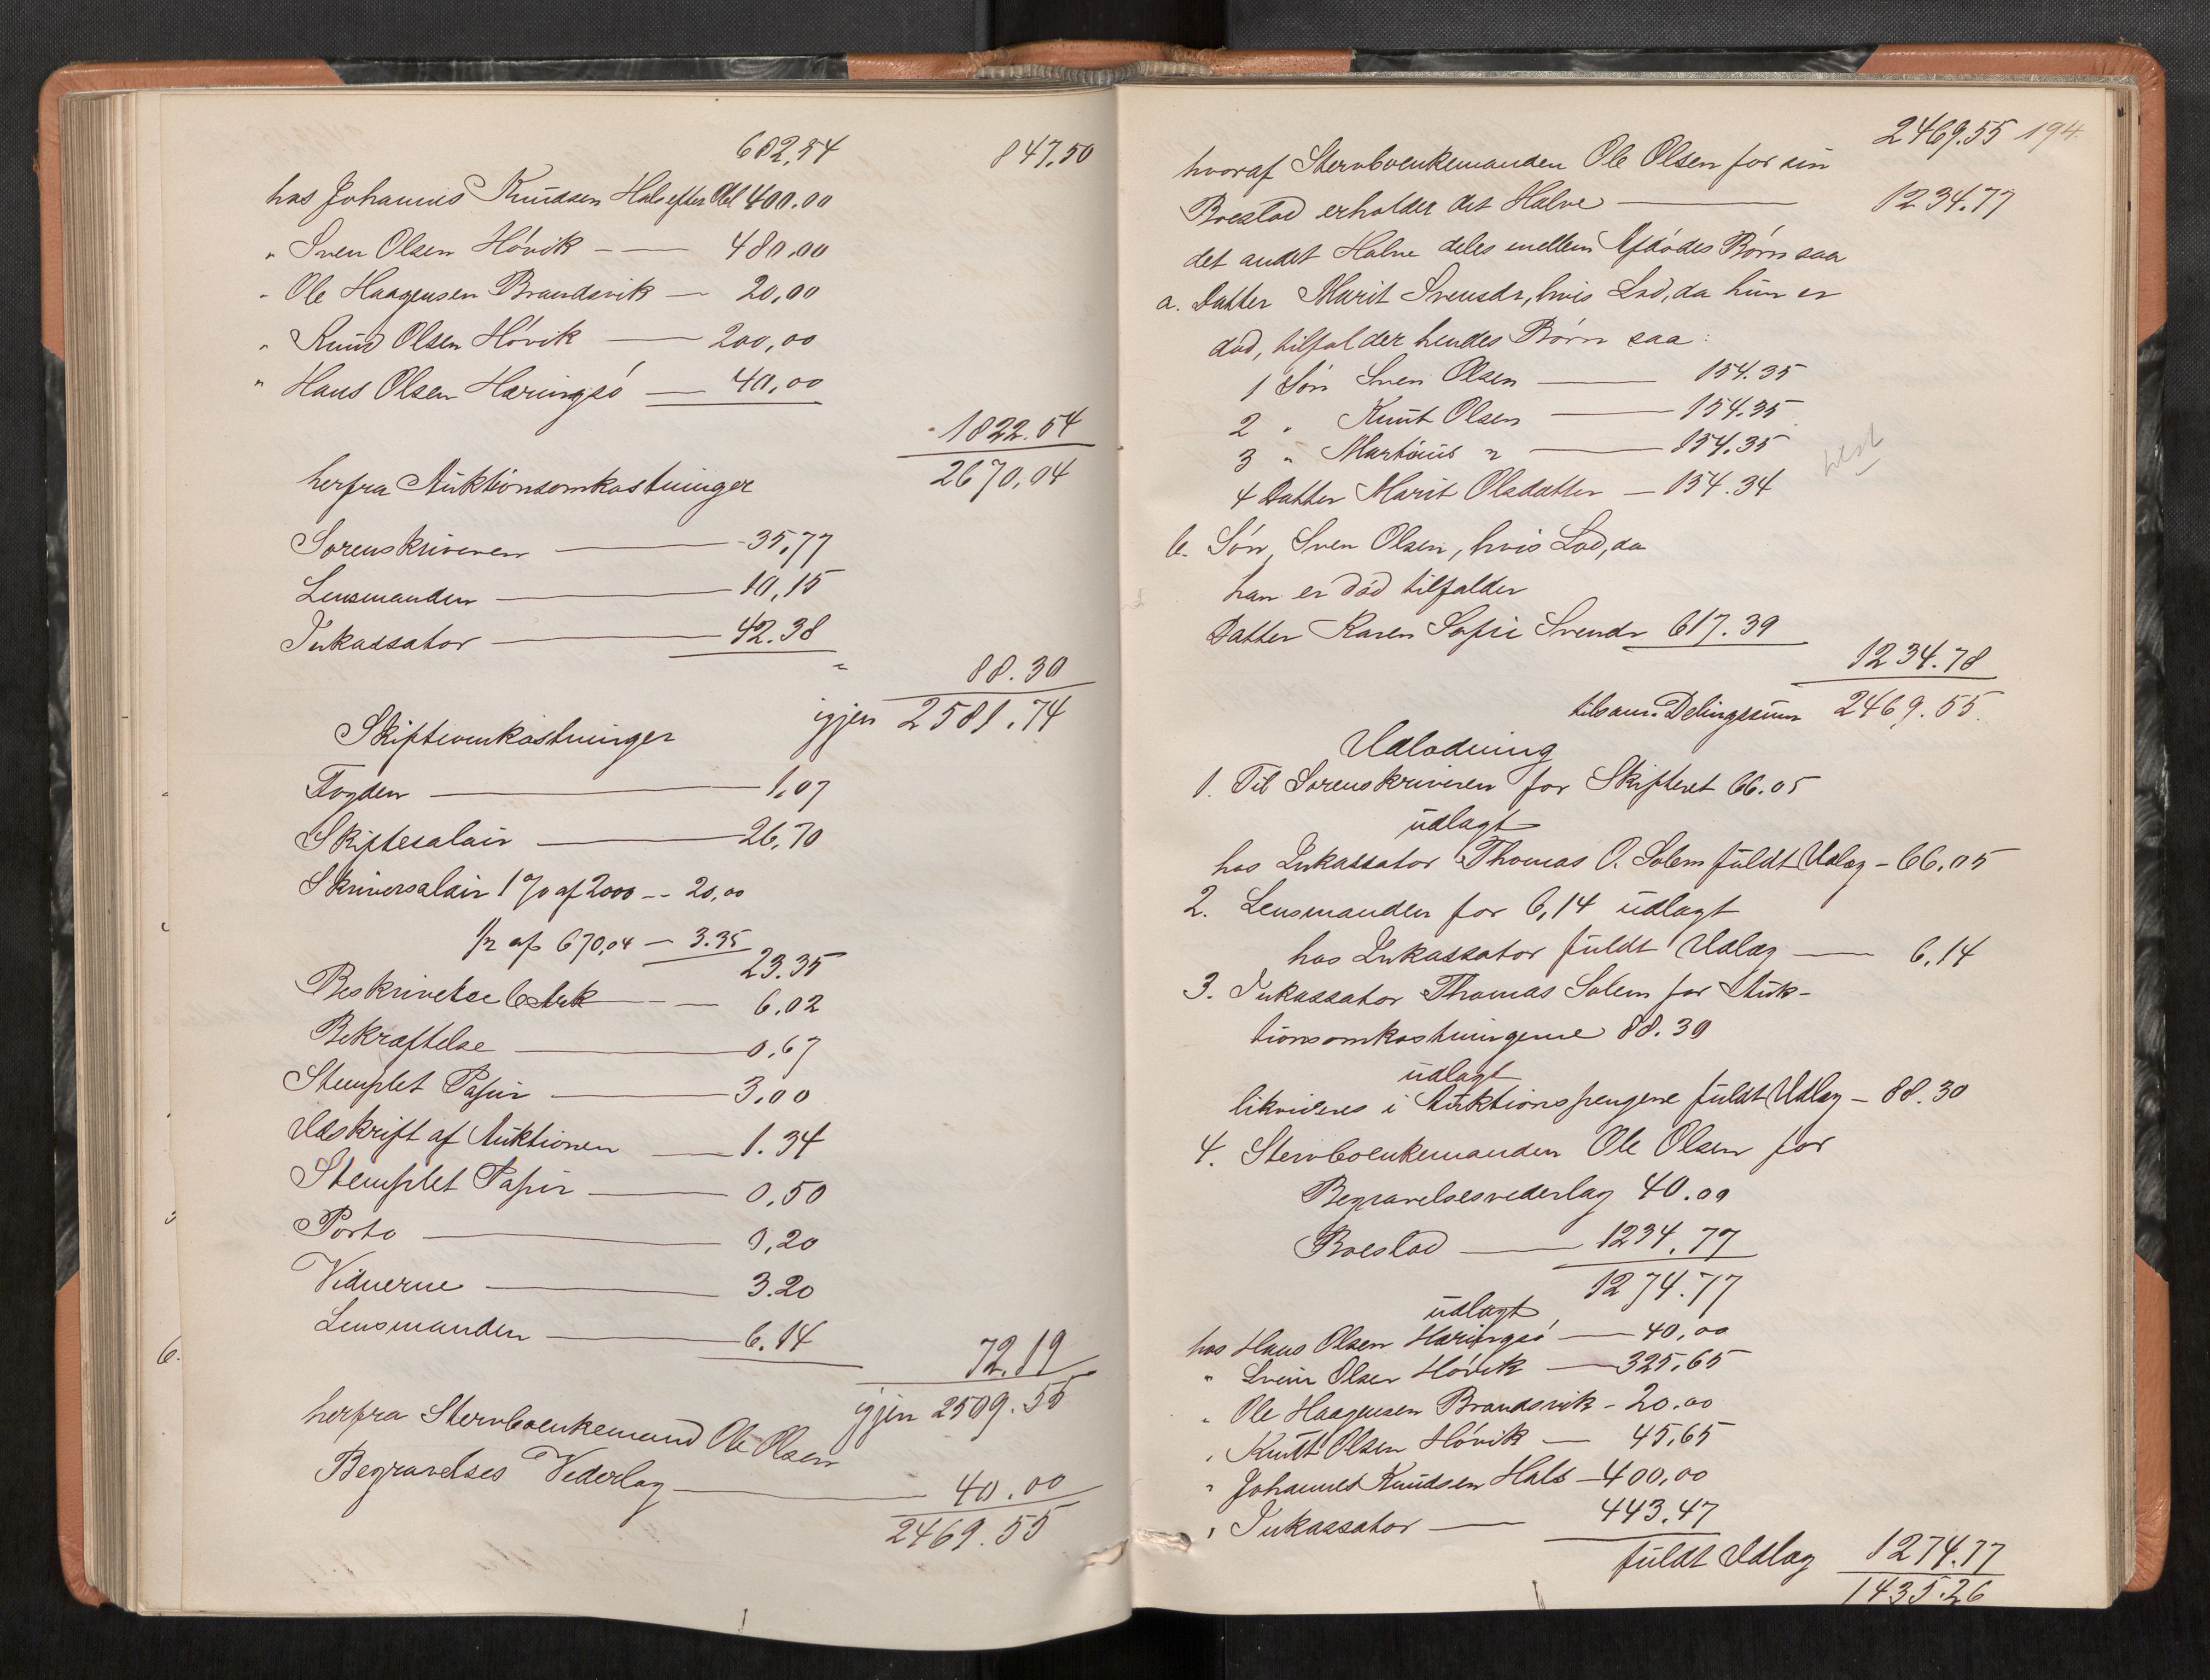 682,54 847,50
hos Johannes Knudsen Hals efter Obl 400.00
" Sven Olsen Hövik — 480,00
" Ole Haagensen Brandsvik — 20,00
" Knud Olsen Hövik — 200,00
" Hans Olsen Haringsö — 40,00
1822.54
2670,04
herfra Auktionsomkostninger
Sorenskriveren — 35,77
Lensmanden — 10,15
Inkassator — 42.38
" 88.30
igjen 2581.74
Skifteomkostninger
Fogden — 1,07
Skiftesalair — 26,70
Skriversalair 1 % af 2000 -- 20,00
1/2 af 670,04 — 3.35
23.35
Beskrivelse 6 Ark — 6.02
Bekræftelse — 0,67
Stemplet Papir — 3,00
Udskrift af Auktionen — 1.34
Stemplet Papir — 0,50
Porto — 0,20
Vidnerne — 3.20
Lensmanden — 6.14
72.19
igjen 2509.55
herfra Stervboenkemand Ole Olsen
Begravelses Vederlag — 40.00
2469.55
2469.55 194
hvoraf Stervboenkemanden Ole Olsen for sin
Boeslod erholder det Halve — 1234.77
det andet Halve deles mellem Afdødes Børn saa
a. Datter Marit Svensdr, hvis Lod, da hun er
død, tilfalder hendes Børn saa:
1 Søn Sven Olsen — 154.35
2 " Knut Olsen — 154.35
3 " Martinus " — 154.35
4 Datter Marit Olsdatter — 154.34
b. Søn, Sven Olsen, hvis Lod, da
han er død tilfalder
Datter Karen Sofie Svendr 617.39
1234.78
tilsam. Delingssum 2469.55.
Udlodning
1. Til Sorenskriveren for Skifteret 66.05
udlagt
hos Inkassator Thomas O. Solem fuldt Udlæg – 66,05
2. Lensmanden for 6,14 udlagt
hos Inkassator fuldt Udlæg — 6,14
3. Inkassator Thomas Solem for Auk-
tionsomkostningerne 88.30
udlagt
likvideres i Auktionspengene fuldt Udlæg – 88.30
4. Stervboenkemanden Ole Olsen for
Begravelsesvederlag 40.00
Boeslod — 1234.77
1274.77
udlagt
hos Hans Olsen Haringsö — 40,00
" Svein Olsen Hövik — 325,65
" Ole Haagensen Brandsvik – 20.00
" Knut Olsen Hövik — 45,65
" Johannes Knudsen Hals – 400,00
" Inkassator — 443.47
fuldt Udlæg 1274.77
1435.26